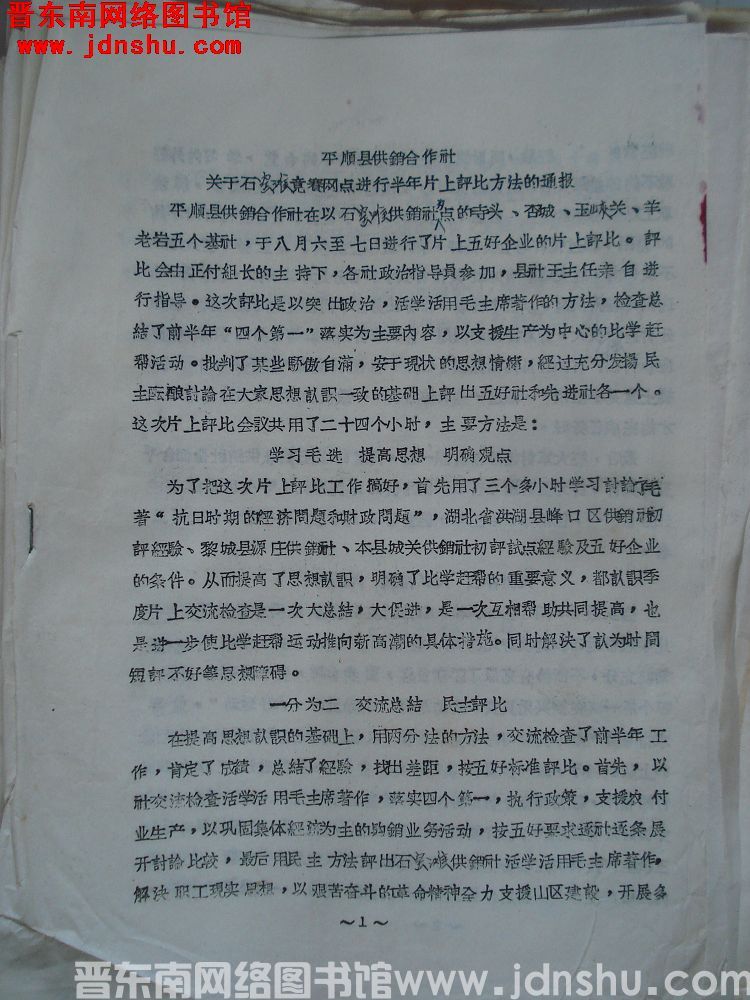 晋东南网络图书馆
www.jdnshu.com
平顺县供銷合作社
关于石窰滩竞赛网点进行半年片上評比方法的通报
平顺县供銷合作社在以石窰滩供銷社为点的寺头、杏城、玉峡关、羊
老岩五个基社，于八月六至七日进行了片上五好企业的片上評比。評
比会由正付組长的主持下，各社政治指导員参加，县社王主任亲自进
行指导。这次評比是以突出政治，活学活用毛主席著作的方法，检查总
結了前半年“四个第一”落实为主要內容，以支援生产为中心的比学赶
帮活动。批判了某些驕傲自滿，安于現状的思想情緒，經过充分发揚民
主酝酿討論在大家思想訤識一致的基础上評出五好社和先进社各一个。
这次片上評比会議共用了二十四个小时，主要方法是：
学习毛选 提高思想 明确观点
为了把这次片上評比工作搞好，首先用了三个多小时学习討論了毛
著“抗日时期的經济問題和財政問題”，湖北省洪湖县峰口区供銷社初
評經驗、黎城县源庄供銷社、本县城关供銷社初評試点經驗及五好企业
的条件。从而提高了思想訤識，明确了比学赶帮的重要意义，都訤識季
度片上交流检查是一次大总結，大促进，是一次互相帮助共同提高，也
是进一步使比学赶帮运动推向新高潮的具体措施。同时解决了訤为时間
短評不好等思想障碍。
一分为二 交流总結 民主評比
在提高思想訤識的基础上，用两分法的方法，交流检查了前半年工
作，肯定了成績，总結了經驗，找出差距，按五好标准評比。首先，以
社交流检查活学活用毛主席著作，落实四个第一，执行政策，支援农付
业生产，以巩固集体經济为主的购銷业务活动，按五好要求逐社逐条展
开討論比較，最后用民主方法評出石窰滩供銷社活学活用毛主席著作。
解决职工現实思想，以艰苦奋斗的革命精神全力支援山区建設，开展多
～1～
晋东南网络图书馆www.jdnshu.com